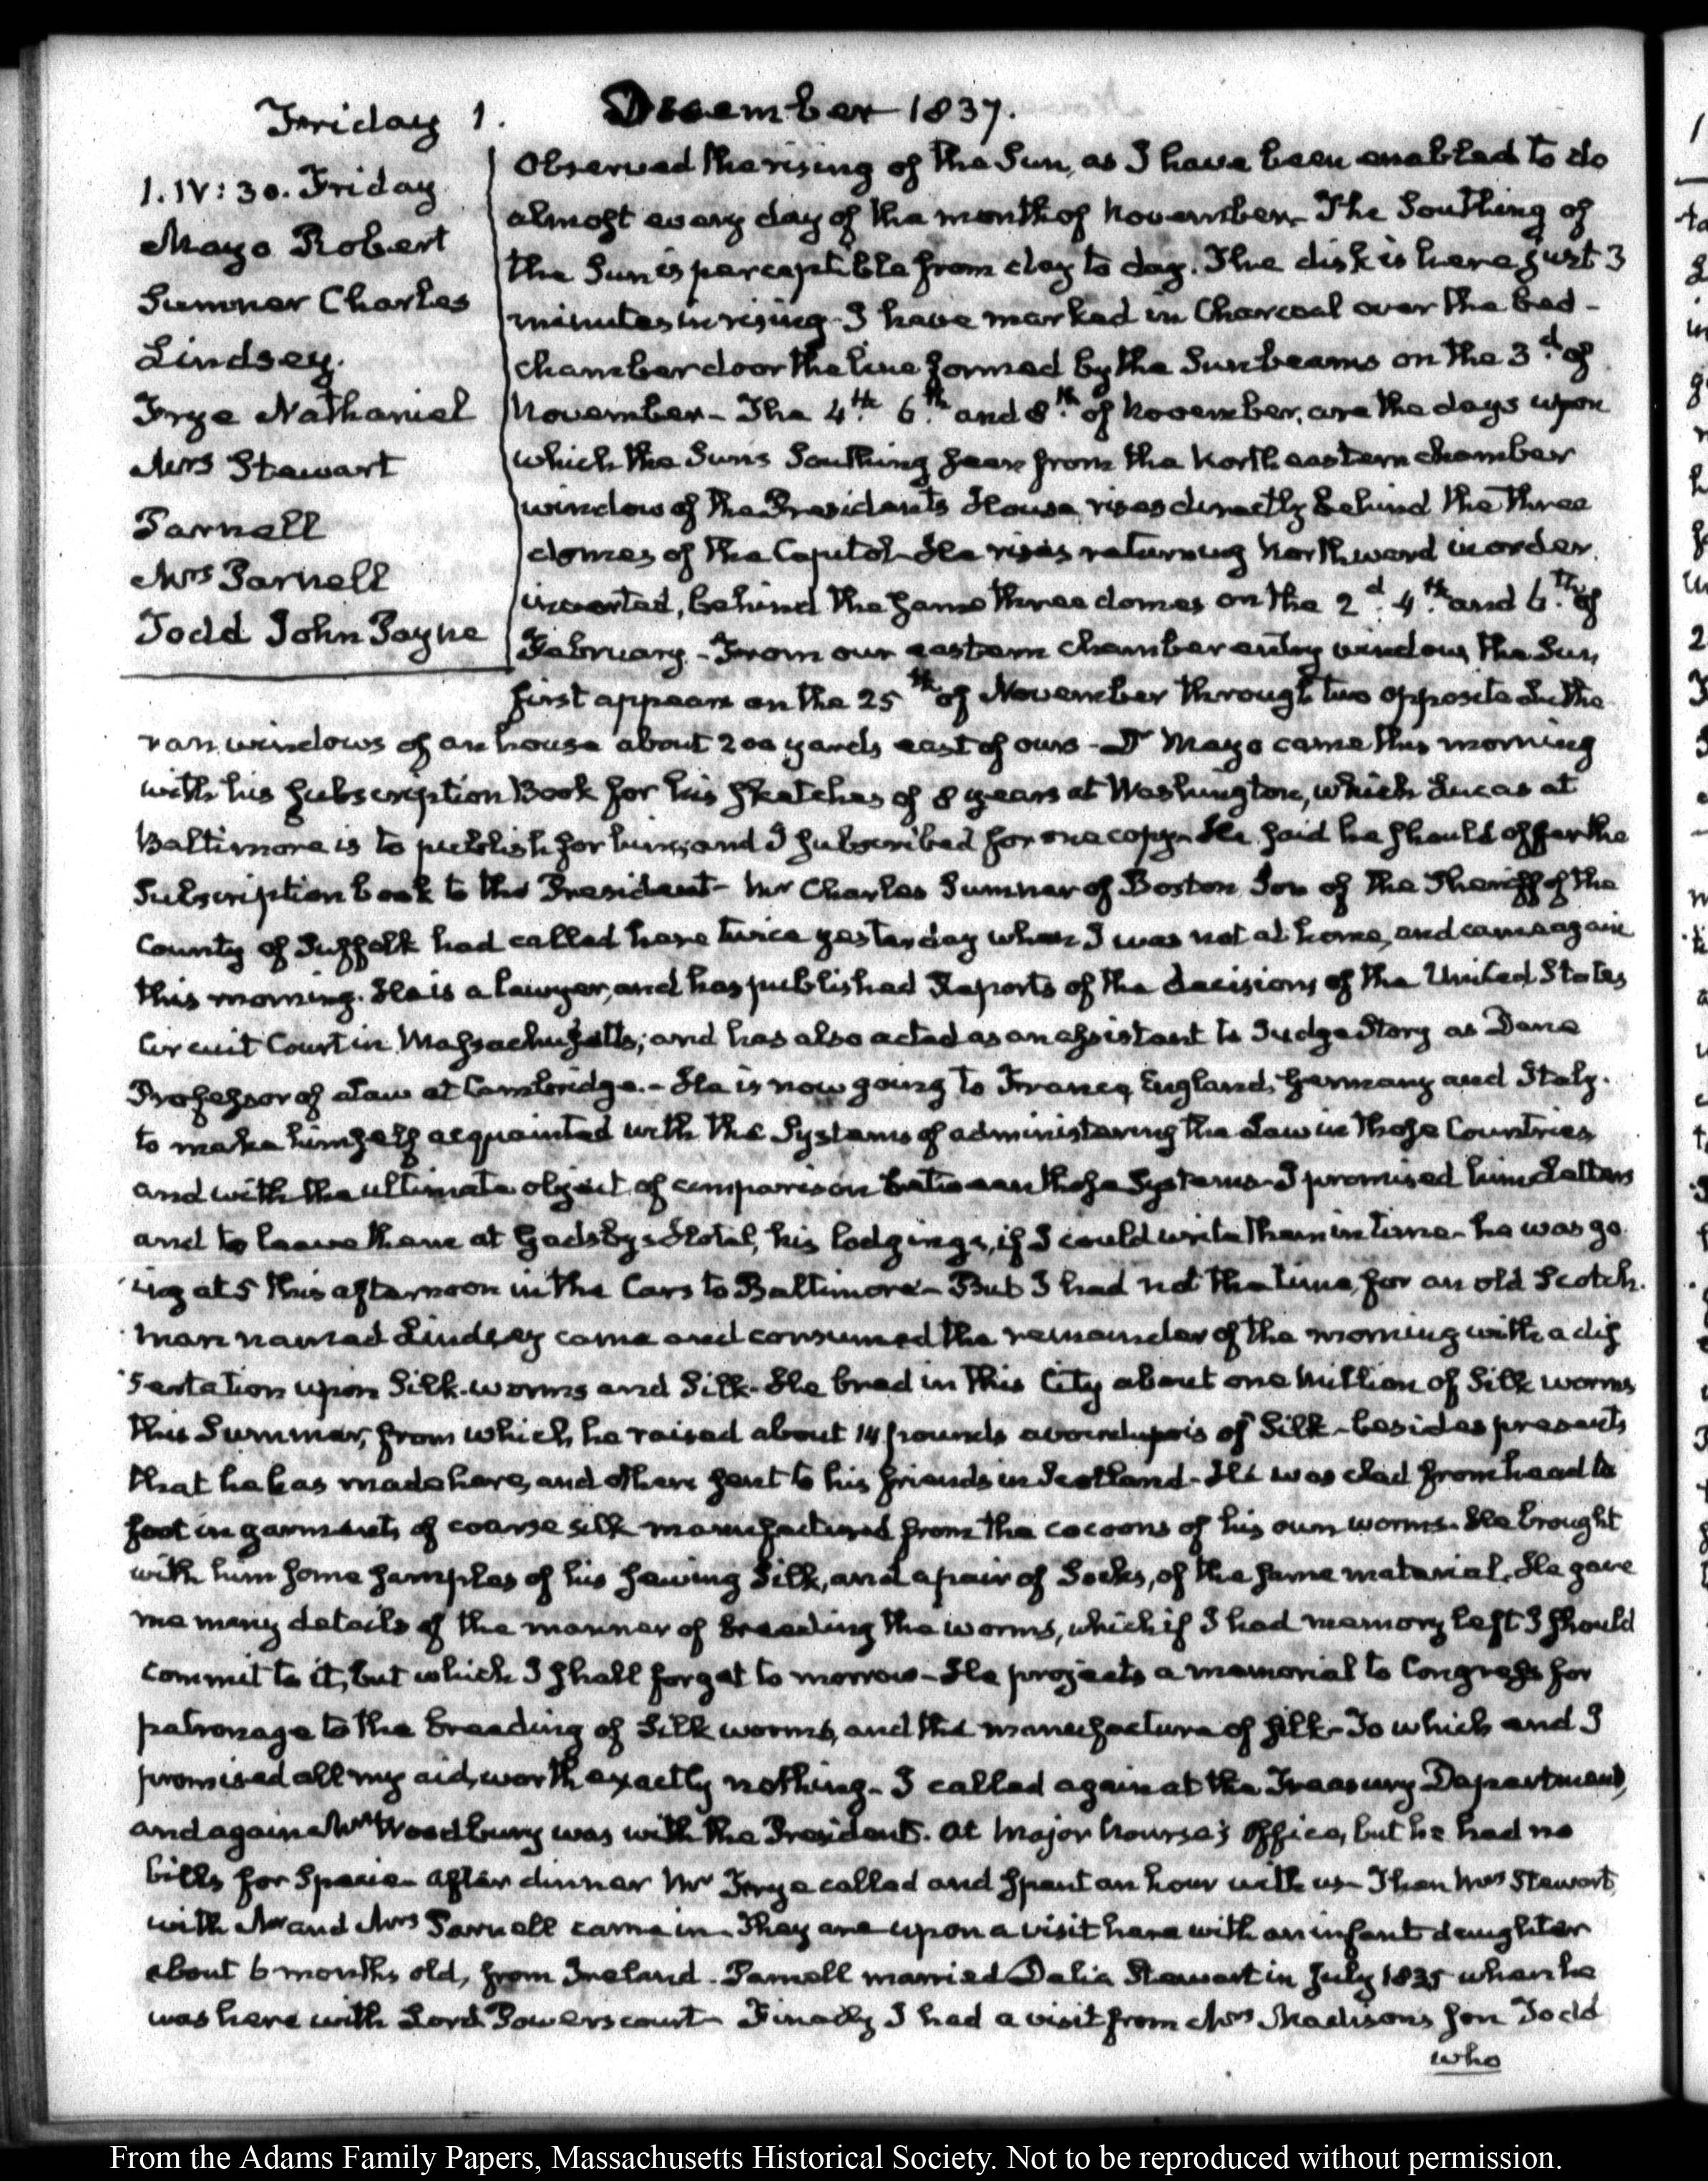 Friday 1. December 1837.
1. IV:30. Friday
Mayo Robert
Sumner Charles
Lindsey.
Frye Nathaniel
Mrs Stewart
Parnell
Mrs Parnell
Todd John Payne
Observed the rising of the Sun, as I have been enabled to do
almost every day of the month of November. The Southing of
the Sun is perceptible from day to day. The disk is here just 3
minutes in rising. I have marked in Charcoal over the bed-
chamber door the line formed by the Sunbeams on the 3d. of
November- The 4th. 6th. and 8th. of November, are the days upon
which the Suns Southing seen from the North eastern chamber
window of the Presidents House, rises directly behind the three
domes of the Capitol- He rises returning Northward in order
inverted, behind the same three domes on the 2d. 4th. and 6th. of
February - From our eastern chamber entry window, the Sun
first appears on the 25th of November through two opposite Luthe
ran windows of an house about 200 yards east of ours - Dr Mayo came this morning
with his subscription Book for his Sketches of 8 years at Washington, which Lucas at
Baltimore is to publish for him; and I subscribed for one copy- He said he should offer the
Subscription book to the President- Mr Charles Sumner of Boston Son of the Sheriff of the
County of Suffolk had called here twice yesterday when I was not at home, and came again
this morning. He is a lawyer, and has published Reports of the decisions of the United States
Circuit Court in Massachusetts; and has also acted as an assistant to Judge Story as Dane
Professor of Law at Cambridge.- He is now going to France, England, Germany and Italy.
to make himself acquainted with the Systems of administering the Law in those Countries
and with the ultimate object of comparison between those Systems- I promised him Letters
and to leave them at Gadsby's Hotel, his lodgings, if I could write them in time- he was go
ing at 5 this afternoon in the Cars to Baltimore- But I had not the time, for an old Scotch.
man named Lindsey came and consumed the remainder of the morning with a dis
sertation upon Silk-worms and Silk- He bred in this City about one Million of Silk worms
this Summer, from which he raised about 14 pounds avoirdupois of Silk- besides presents
that he has made here, and others sent to his friends in Scotland- He was clad from head to
foot in garments of coarse silk manufactured from the cocoons of his own worms. He brought
with him some samples of his sewing Silk, and a pair of Socks, of the same material. He gave
me many details of the manner of breeding the worms, which if I had memory left I should
commit to it, but which I shall forget to morrow- He projects a memorial to Congress for
patronage to the breeding of Silk worms, and the manufacture of silk- To which end I
promised all my aid, worth exactly nothing- I called again at the Treasury Department,
and again Mr Woodbury was with the President. At Major Nourse's Office, but he had no
bills for Specie- After dinner Mr Frye called and spent an hour with us- Then Mrs Stewart
with Mr and Mrs Parnell came in- They are upon a visit here with an infant daughter
about 6 months old, from Ireland- Parnell married Delia Stewart in July 1835 when he
was here with Lord Powerscourt- Finally I had a visit from Mrs Madison's Son Todd
who
From the Adams Family Papers, Massachusetts Historical Society. Not to be reproduced without permission.